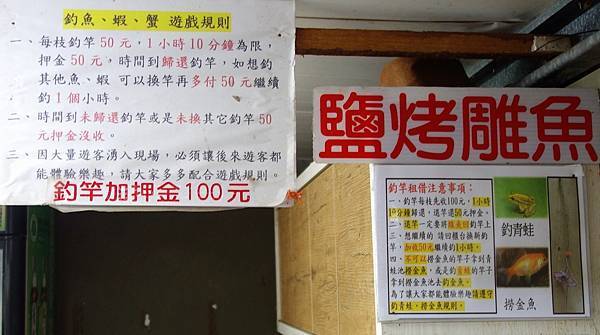 釣魚、蝦、蟹 遊戲規則
一、每枝釣竿50元，1小時10分鐘為限，
押金50元，時間到歸還釣竿，如想釣
其他魚、蝦 可以換竿再多付50元繼續
釣1個小時。
二、時間到未歸還釣竿或是未換其它釣竿50
元押金沒收。
三、因大量遊客湧入現場，必須讓後來遊客都
能體驗樂趣，請大家多多配合遊戲規則。
釣竿加押金100元
鹽烤雕魚
釣竿租借注意事項：
一、釣竿每枝先收100元，1小時
10分鐘歸還，還竿還50元押金。
二、還竿一定要將
釣竿上
三、想繼續的 請回櫃台換新釣
竿，加收50元繼續釣1小時。
四、不可以撈金魚的竿子拿到青
蛙池撈金魚，或是釣青蛙的竿子
拿到撈金魚池去釣金魚。
為了讓大家都能體驗樂趣請遵守
釣青蛙、撈金魚規則。
釣青蛙
撈金魚